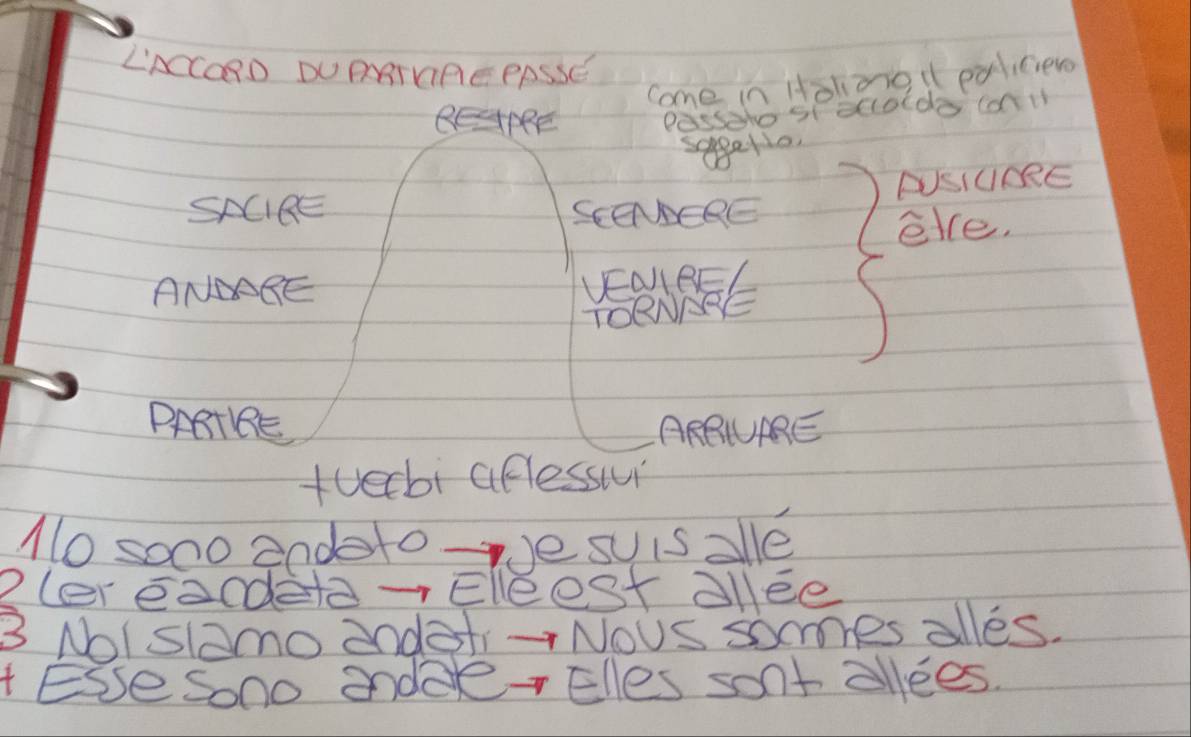 L'ACCORD DU PARTICIPE PASSÉ
come in italiano il participio
passato si accorda con il
soggetto.
RESTARE
SALIRE
SCENDERE
AUSILIARE
être.
ANDARE
VENIRE/
TORNARE
PARTIRE
ARRIVARE
+ verbi riflessivi
1 Io sono andato → je suis allé
2 Lei è andata → Elle est allée
3 Noi siamo andati → Nous sommes allés.
4 Esse sono andate → Elles sont allées.